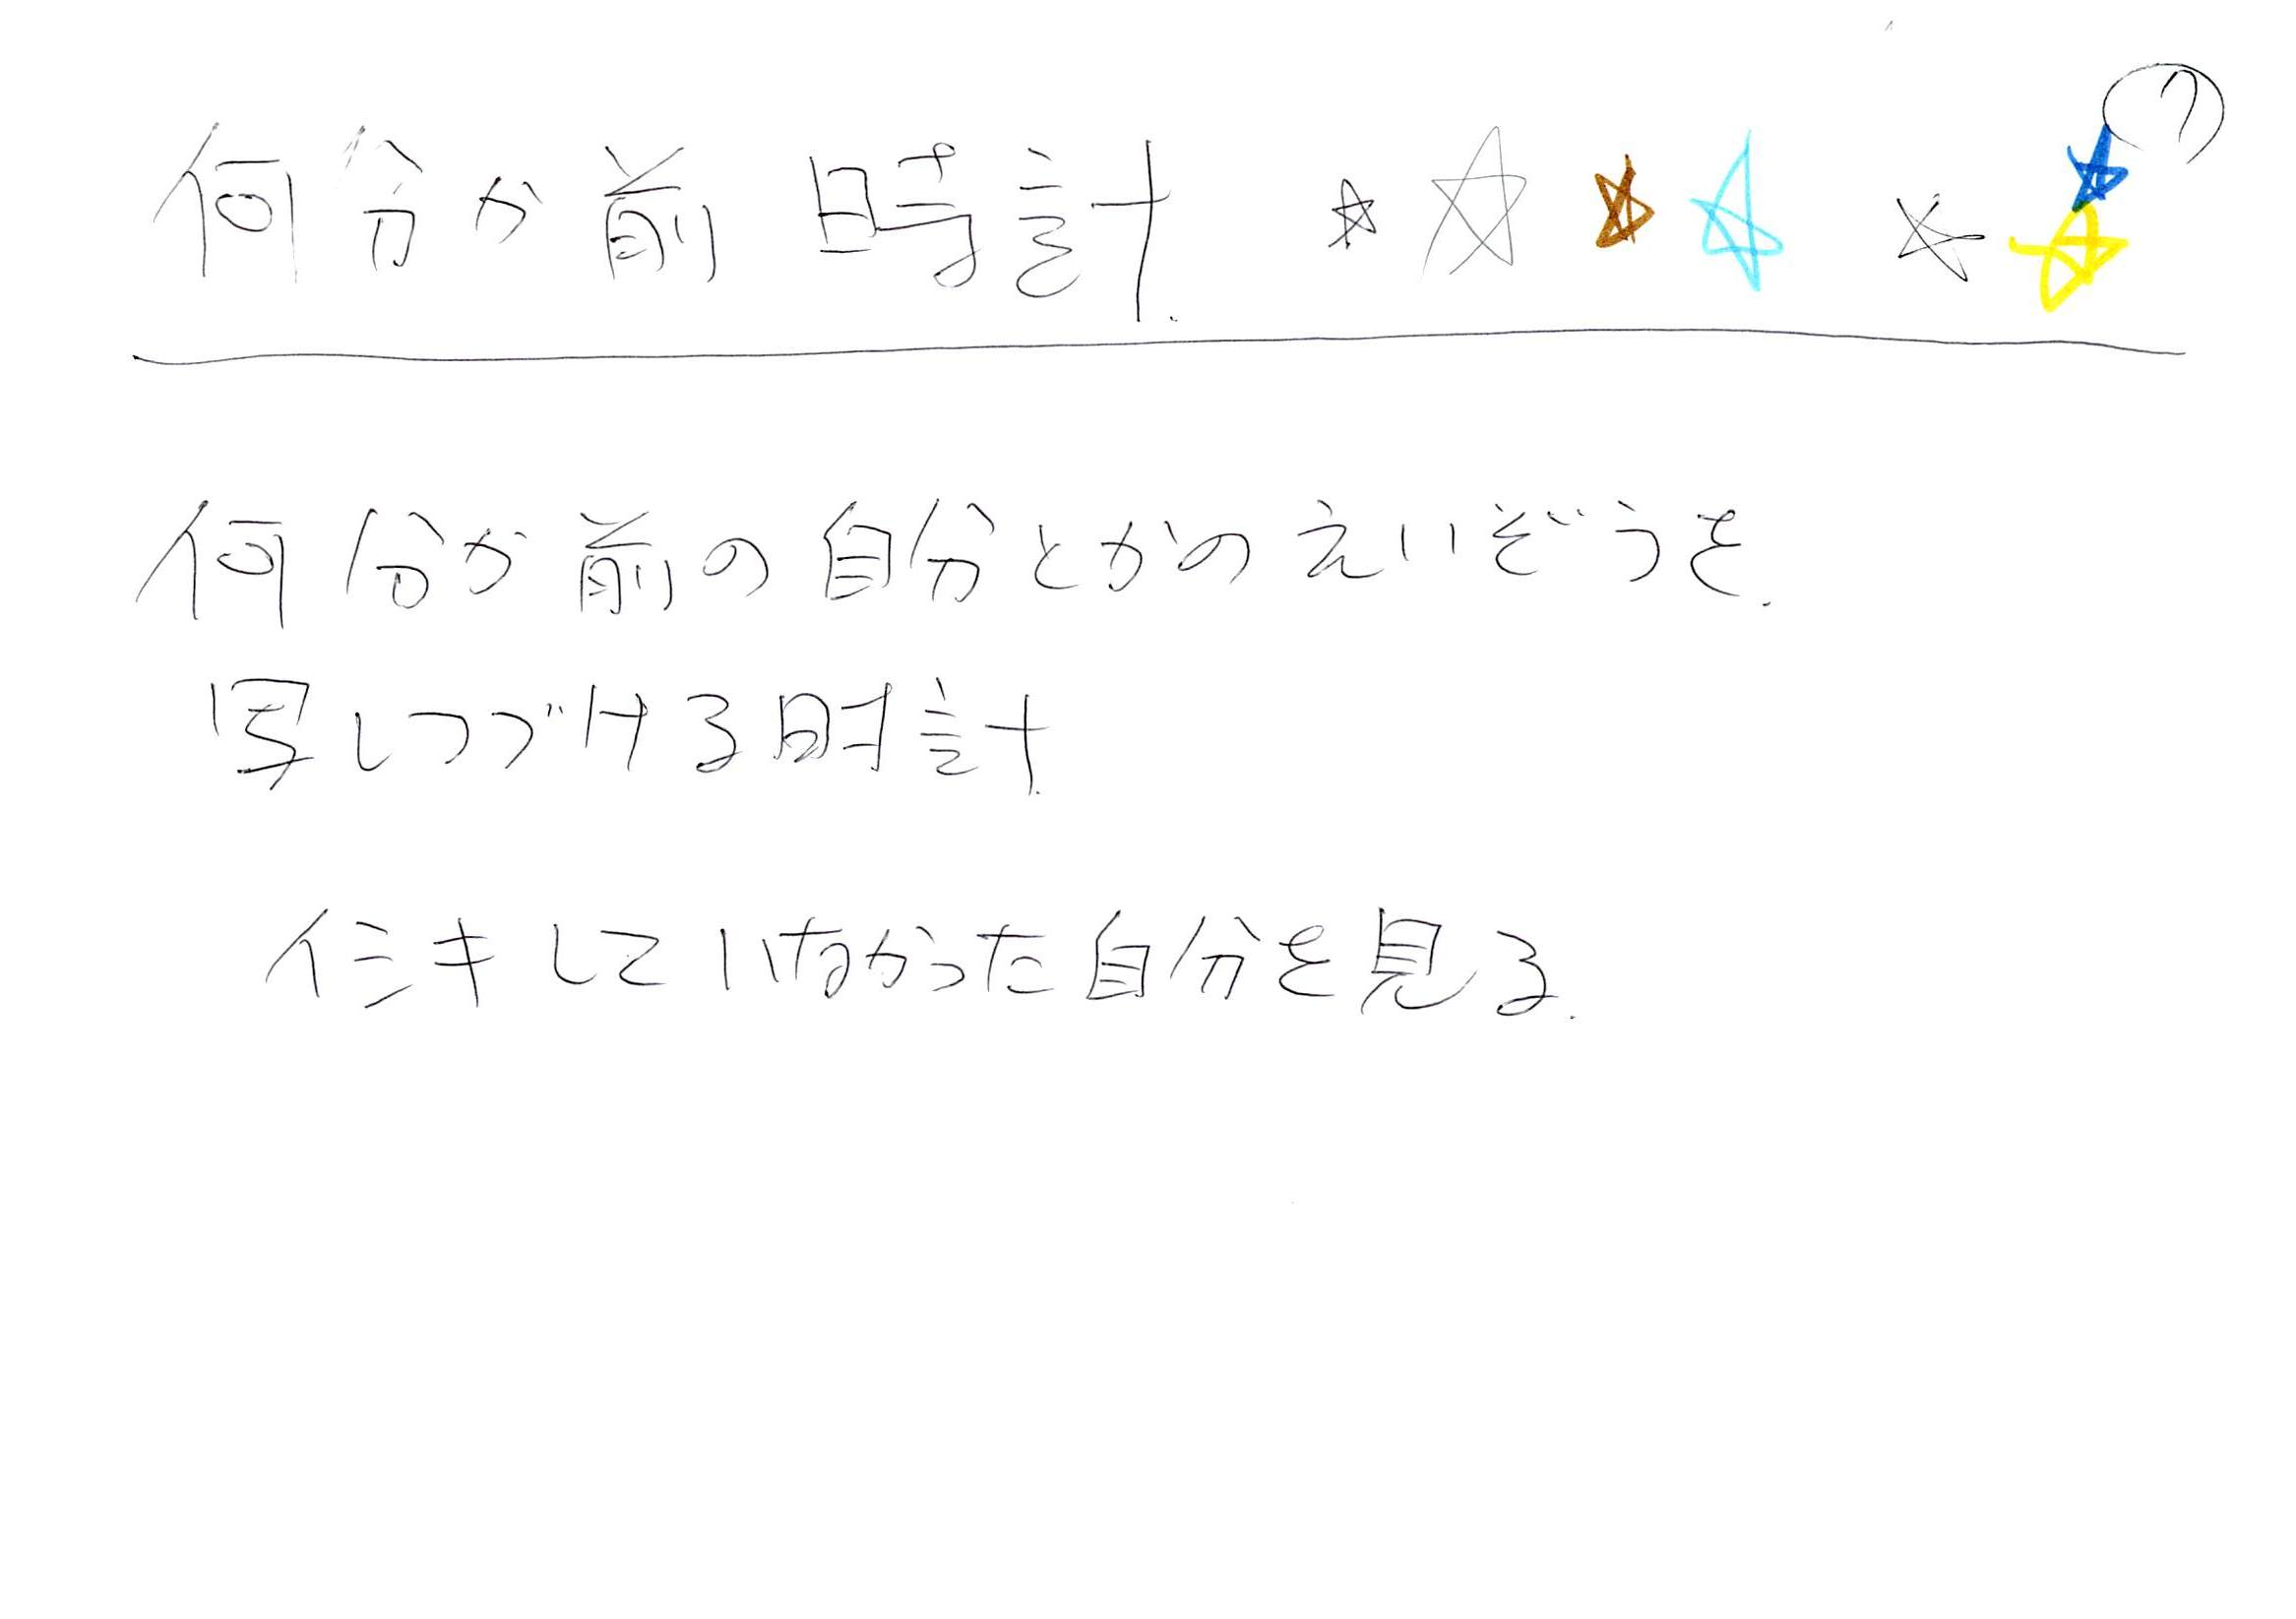 何分か前時計.
何分か前の自分とかのえいぞうを.
写しつづける時計.
イシキしていなかった自分を見る.